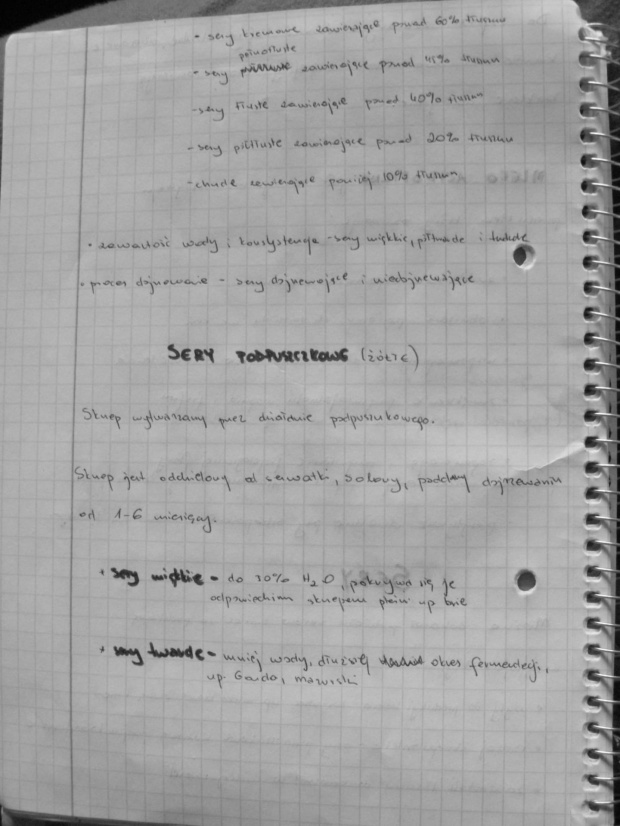 • sery kremowe zawierające ponad 60% tłuszczu
pełnotłuste
- sery zawierające ponad 45% tłuszczu
- sery tłuste zawierające ponad 40% tłuszczu
- sery półtłuste zawierające ponad 20% tłuszczu
- chude zawierające poniżej 10% tłuszczu
• zawartość wody i konsystencja - sery miękkie, półtwarde i twarde
• proces dojrzewania - sery dojrzewające i niedojrzewające
SERY PODPUSZCZKOWE (ŻÓŁTE)
Skrzep wytwarzany przez działanie podpuszczkowego.
Skrzep jest oddzielony od serwatki, solony, poddany dojrzewaniu
od 1-6 miesięcy.
• sery miękkie - do 30% H₂O, pokrywa się je
odpowiednim skrzepem pleśni np brie
• sery twarde - mniej wody, dłuższy okres fermentacji,
np. Gouda, mazurski